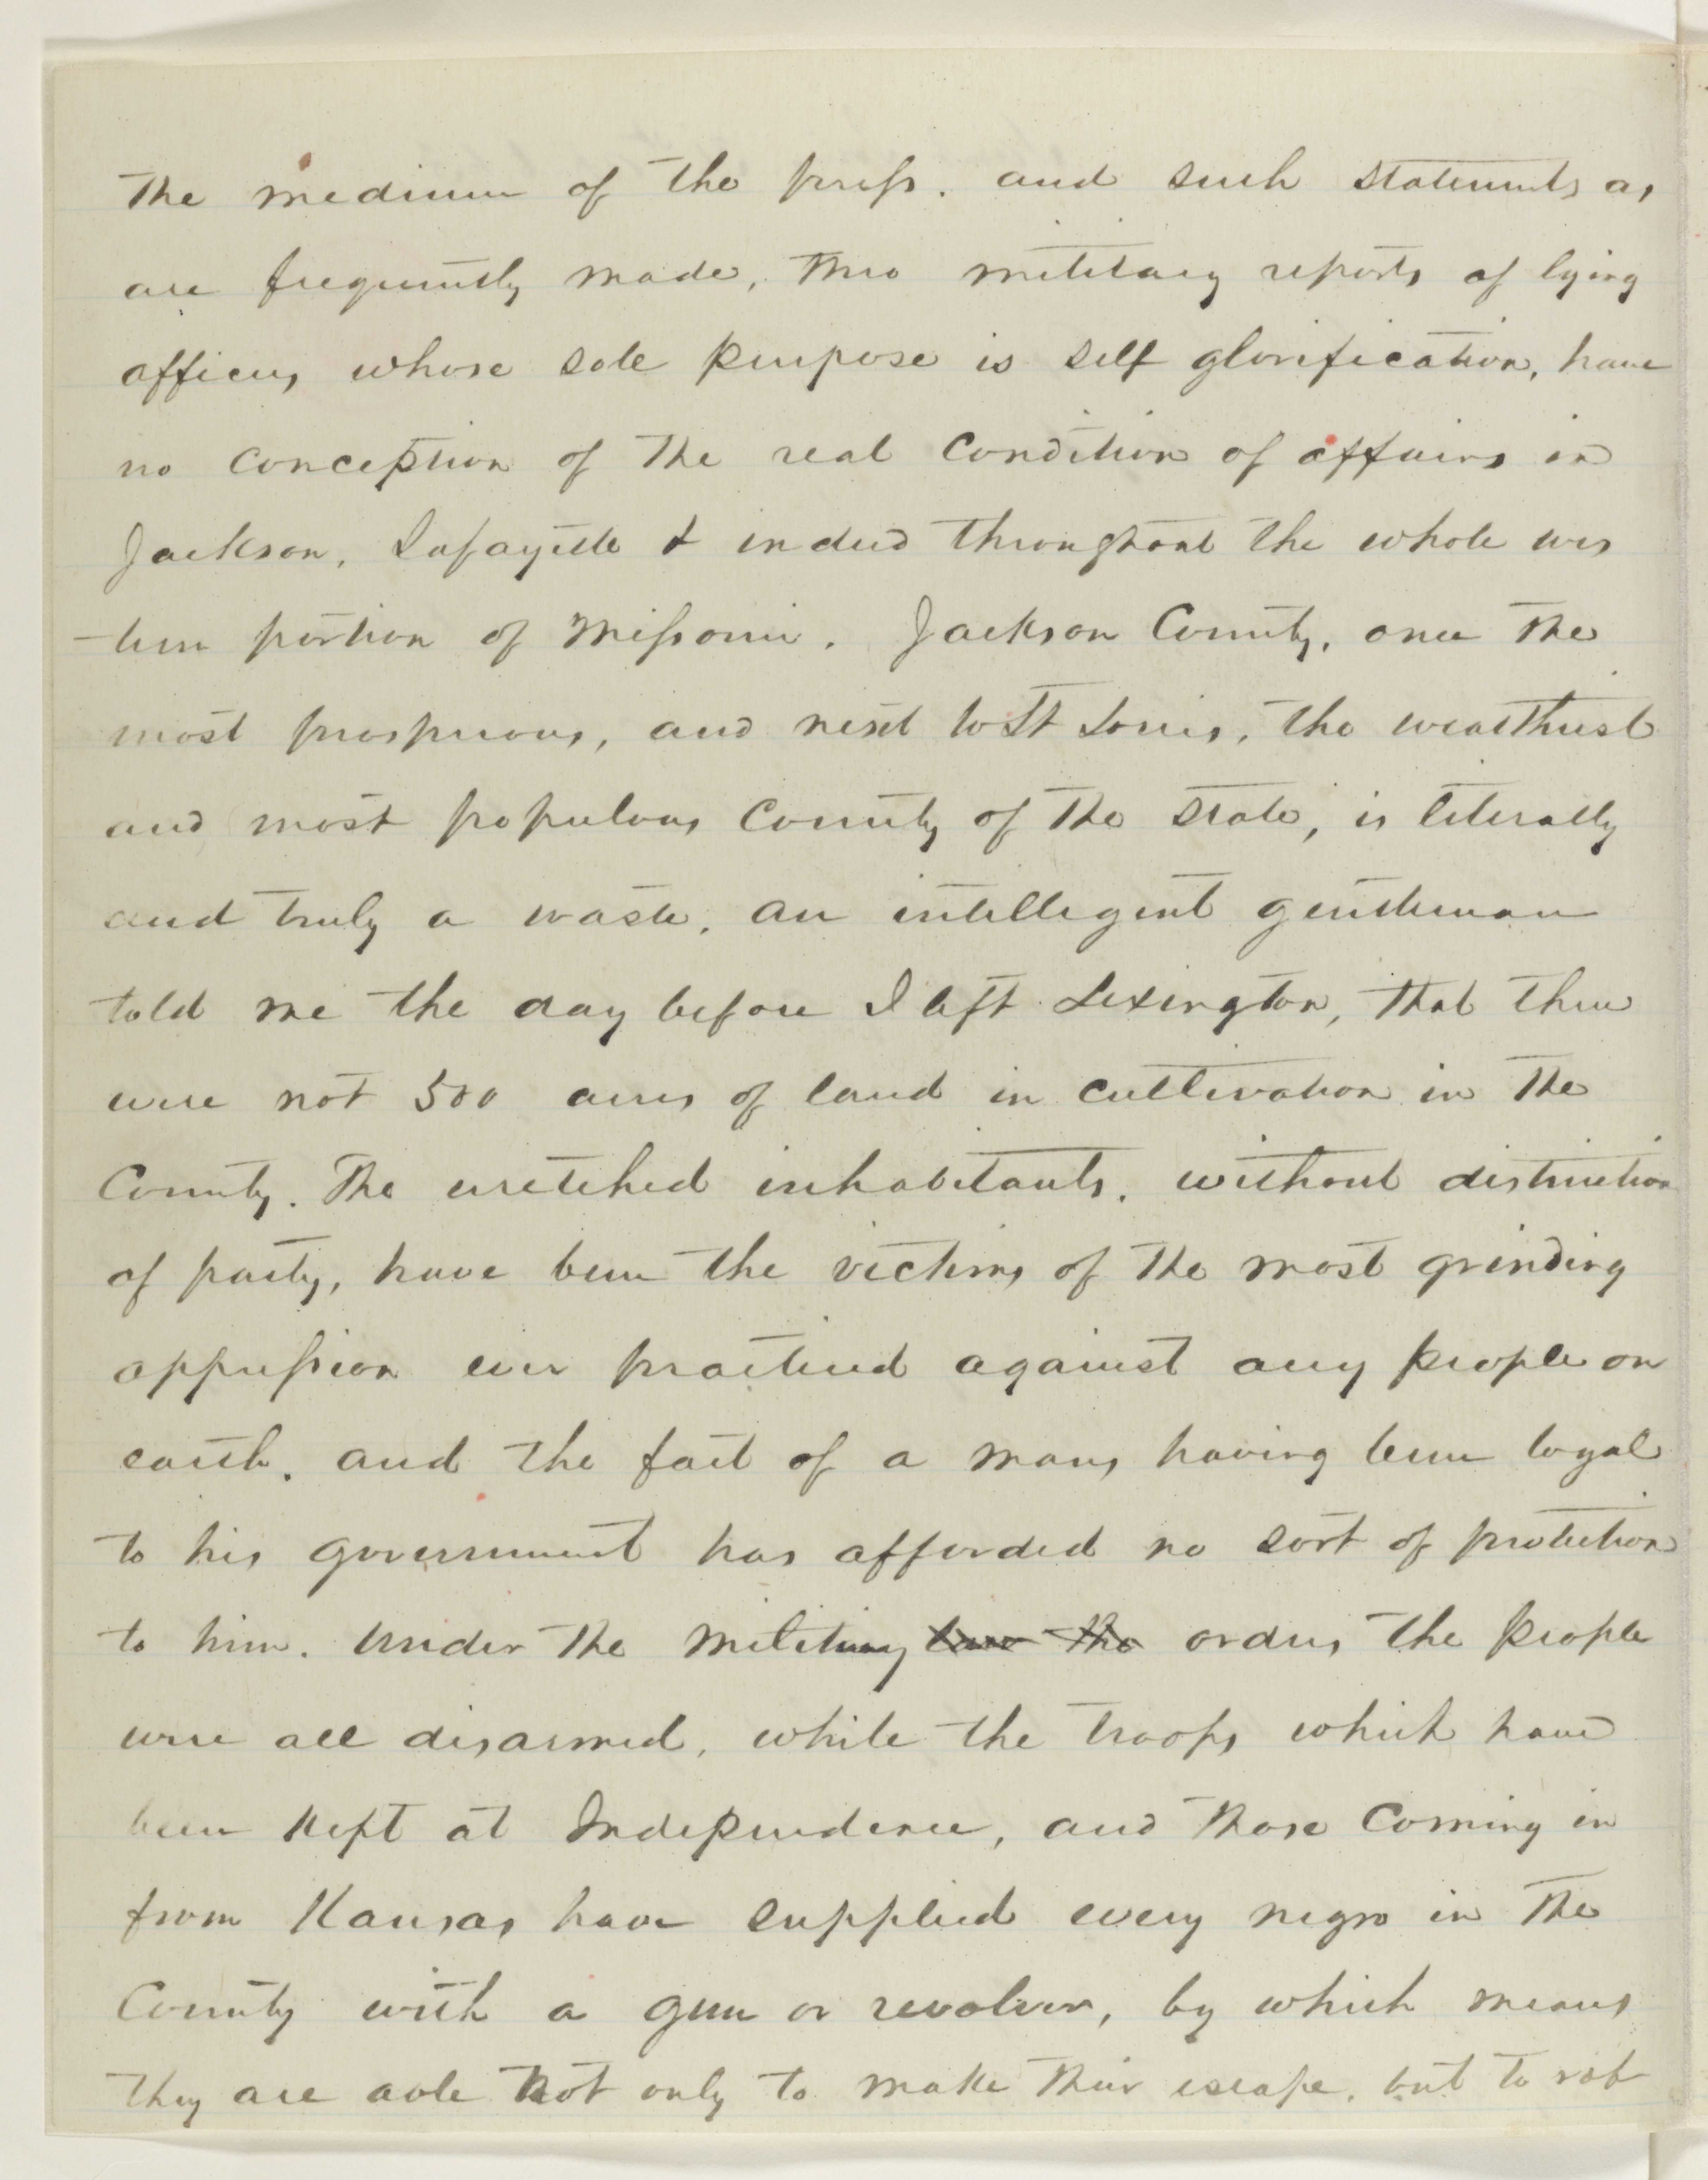 the medium of the press. and such statements as
are frequently made, thro military reports of lying
officers whose sole purpose is self glorification, have
no conception of the real condition of affairs in
Jackson, Lafayette & indeed throughout the whole wes
-tern portion of Missouri. Jackson County, once the
most prosperous, and next to St Louis, the wealthiest
and most populous County of the State, is literally
and truly a waste. An intelligent gentleman
told me the day before I left Lexington, that there
were not 500 acres of land in cultivation in the
County. The wretched inhabitants, without distinction
of party, have been the victims of the most grinding
oppression ever practiced against any people on
earth. and the fact of a mans having been loyal
to his government has afforded no sort of protection
to him. Under the military law the orders the people
were all disarmed, while the troops which have
been kept at Independence, and those coming in
from Kansas have supplied every negro in the
County with a gun or revolver, by which means
they are able not only to make their escape, but to rob